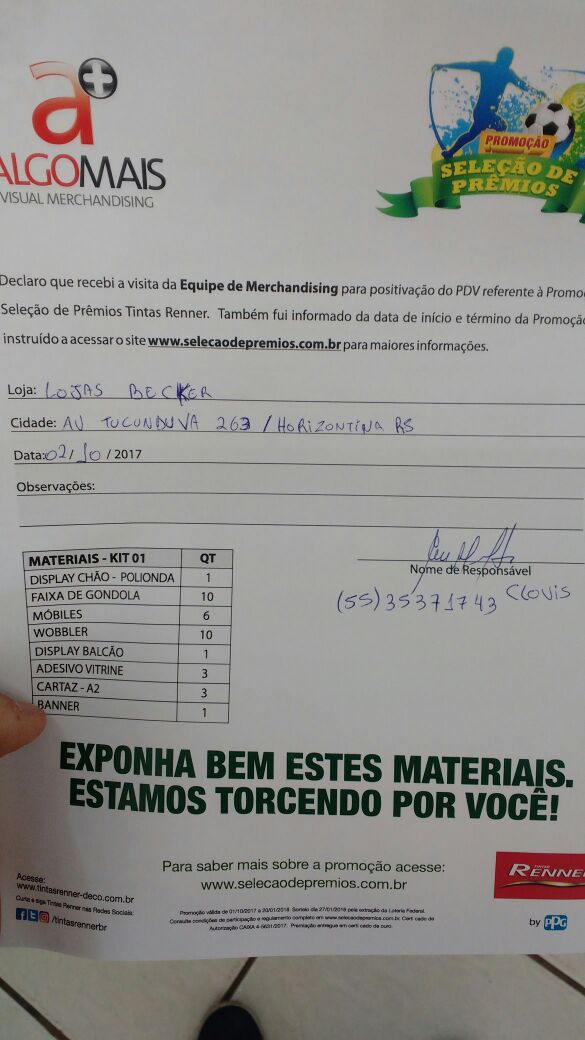 a+
ALGOMAIS
VISUAL MERCHANDISING
PROMOÇÃO
SELEÇÃO DE
PRÊMIOS
Declaro que recebi a visita da Equipe de Merchandising para positivação do PDV referente à Promo
Seleção de Prêmios Tintas Renner. Também fui informado da data de início e término da Promoção
instruído a acessar o site www.selecaodepremios.com.br para maiores informações.
Loja: LOJAS BECKER
Cidade: AV TUCUNDUVA 263 / HORIZONTINA RS
Data: 02/10/2017
Observações:
MATERIAIS - KIT 01 QT
DISPLAY CHÃO - POLIONDA 1
FAIXA DE GONDOLA 10
MÓBILES 6
WOBBLER 10
DISPLAY BALCÃO 1
ADESIVO VITRINE 3
CARTAZ - A2 3
BANNER 1
Nome de Responsável
(55)35371743 CLOVIS
EXPONHA BEM ESTES MATERIAIS.
ESTAMOS TORCENDO POR VOCÊ!
Para saber mais sobre a promoção acesse:
www.selecaodepremios.com.br
Acesse:
www.tintasrenner-deco.com.br
Curta e siga Tintas Renner nas Redes Sociais:
/tintasrennerbr
Promoção válida de 01/10/2017 a 20/01/2018. Sorteio dia 27/01/2018 pela extração da Loteria Federal.
Consulte condições de participação e regulamento completo em www.selecaodepremios.com.br. Certi cado de
Autorização CAIXA 4-5631/2017. Premiação entregue em certi cado de ouro.
TINTAS
RENNER
by PPG